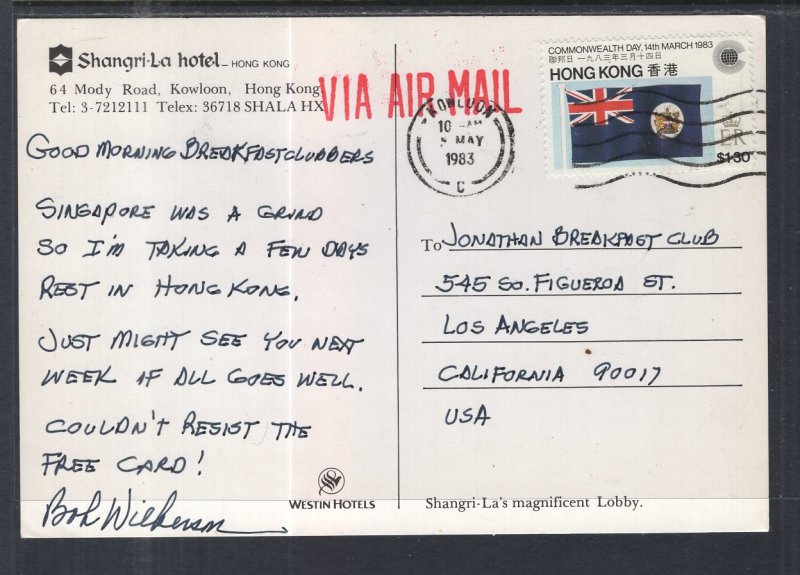 Shangri-La hotel – HONG KONG
64 Mody Road, Kowloon, Hong Kong
Tel: 3-7212111 Telex: 36718 SHALA HX
VIA AIR MAIL
KOWLOON
10 - AM
5 MAY
1983
C
COMMONWEALTH DAY, 14th MARCH 1983
聯邦日 一九八三年三月十四日
HONG KONG 香港
ER
$1.30
GOOD MORNING BREAKFASTCLUBBERS
SINGAPORE WAS A GRIND
SO I'M TAKING A FEW DAYS
REST IN HONG KONG.
JUST MIGHT SEE YOU NEXT
WEEK IF ALL GOES WELL.
COULDN'T RESIST THE
FREE CARD!
Bob Wilkerson
WESTIN HOTELS
To JONATHAN BREAKFAST CLUB
545 SO. FIGUEROA ST.
LOS ANGELES
CALIFORNIA 90017
USA
Shangri-La's magnificent Lobby.